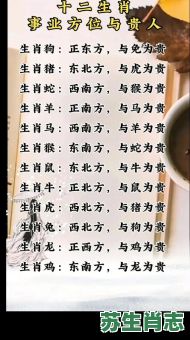 十二生肖
事业方位与贵人
生肖狗：正东方，与兔为贵
生肖猪：东北方，与虎为贵
生肖蛇：西南方，与猴为贵
生肖羊：正南方，与马为贵
生肖马：西南方，与羊为贵
生肖猴：东南方，与蛇为贵
生肖鼠：东北方，与牛为贵
生肖牛：正北方，与鼠为贵
生肖虎：西北方，与猪为贵
生肖兔：西北方，与狗为贵
生肖龙：正西方，与鸡为贵
生肖鸡：东南方，与龙为贵
苏生肖志